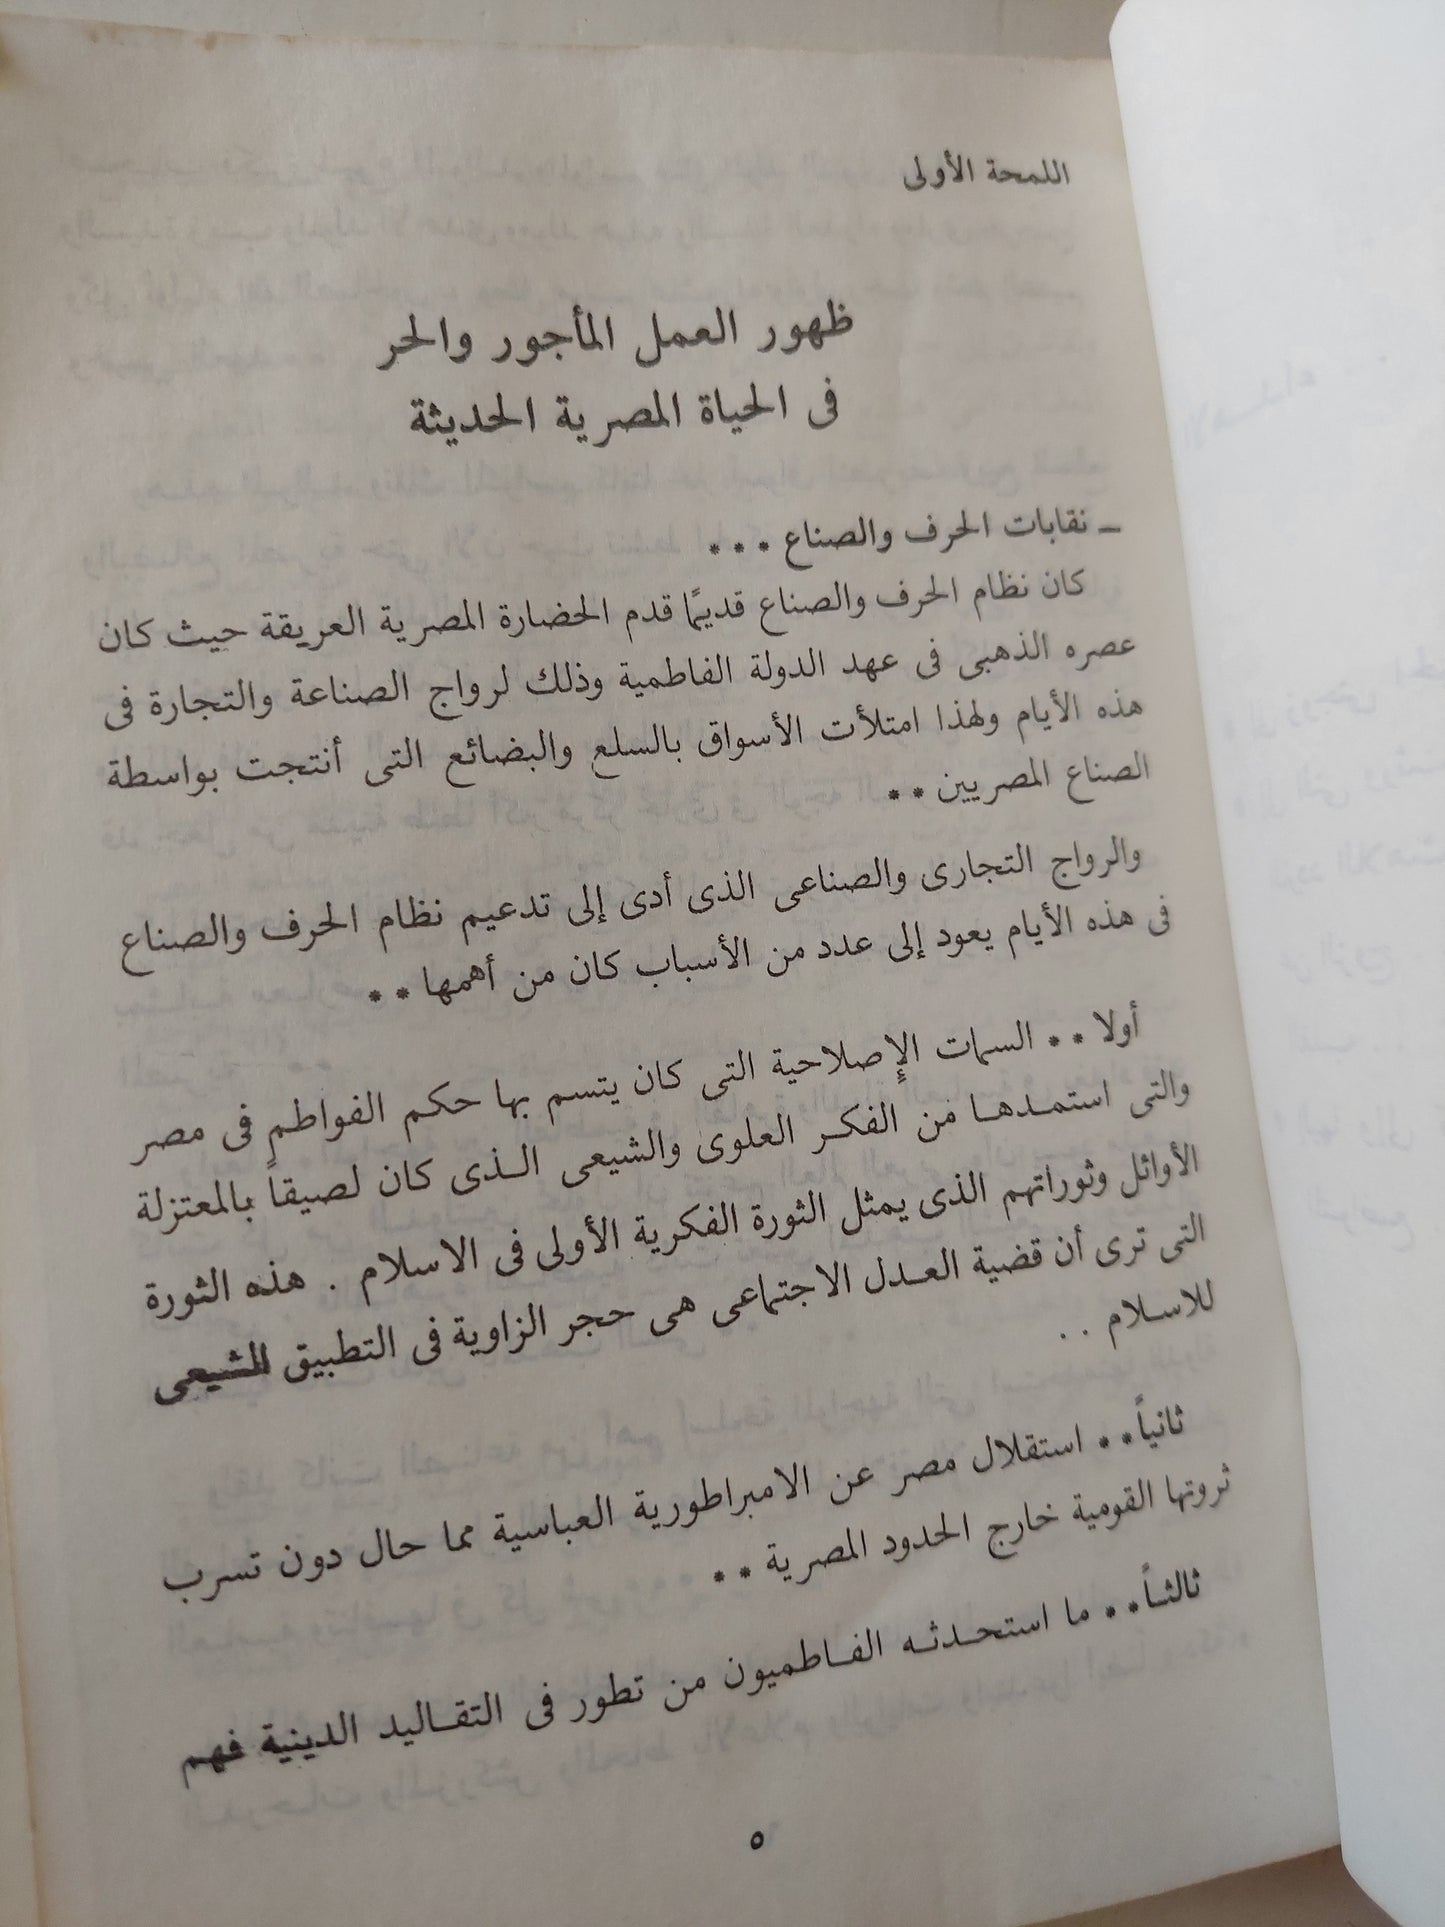 اللمحة الأولى
ظهور العمل المأجور والحر
فى الحياة المصرية الحديثة
ــ نقابات الحرف والصناع ٠٠٠
كان نظام الحرف والصناع قديمًا قدم الحضارة المصرية العريقة حيث كان
عصره الذهبى فى عهد الدولة الفاطمية وذلك لرواج الصناعة والتجارة فى
هذه الأيام ولهذا امتلأت الأسواق بالسلع والبضائع التى أنتجت بواسطة
الصناع المصريين ٠٠
والرواج التجارى والصناعى الذى أدى إلى تدعيم نظام الحرف والصناع
فى هذه الأيام يعود إلى عدد من الأسباب كان من أهمها ٠٠
أولا ٠٠ السمات الإصلاحية التى كان يتسم بها حكم الفواطم فى مصر
والتى استمدها من الفكر العلوى والشيعى الذى كان لصيقاً بالمعتزلة
الأوائل وثوراتهم الذى يمثل الثورة الفكرية الأولى فى الاسلام . هذه الثورة
التى ترى أن قضية العدل الاجتماعى هى حجر الزاوية فى التطبيق الشيعى
للاسلام . .
ثانياً ٠٠ استقلال مصر عن الامبراطورية العباسية مما حال دون تسرب
ثروتها القومية خارج الحدود المصرية ٠٠
ثالثاً ٠٠ ما استحدثه الفاطميون من تطور فى التقاليد الدينية فهم
٥